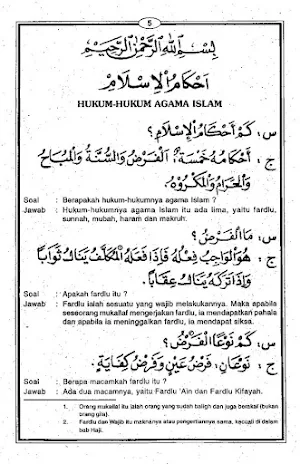 5
بِسْمِ اللهِ الرَّحْمٰنِ الرَّحِيْمِ
اَحْكَامُ الْاِسْلَامِ
HUKUM-HUKUM AGAMA ISLAM
س، كَمْ اَحْكَامُ الْاِسْلَامِ؟
ج : اَحْكَامُهُ خَمْسَةٌ، اَلْفَرْضُ وَالسُّنَّةُ وَالْمُبَاحُ
وَالْحَرَامُ وَالْمَكْرُوْهُ.
Soal : Berapakah hukum-hukumnya agama Islam ?
Jawab : Hukum-hukumnya agama Islam itu ada lima, yaitu fardlu,
sunnah, mubah, haram dan makruh.
س، مَا الْفَرْضُ؟
ج : هُوَ الْوَاجِبُ فِعْلُهُ فَاِذَا فَعَلَهُ الْمُكَلَّفُ يَنَالُ ثَوَابًا
وَاِذَا تَرَكَهُ يَنَالُ عِقَابًا.
Soal : Apakah fardlu itu ?
Jawab : Fardlu ialah sesuatu yang wajib melakukannya. Maka apabila
seseorang mukallaf mengerjakan fardlu, ia mendapatkan pahala
dan apabila ia meninggalkan fardlu, ia mendapat siksa.
س، كَمْ نَوْعًا الْفَرْضُ؟
ج : نَوْعَانِ، فَرْضُ عَيْنٍ وَفَرْضُ كِفَايَةٍ.
Soal : Berapa macamkah fardlu itu ?
Jawab : Ada dua macamnya, yaitu Fardlu 'Ain dan Fardlu Kifayah.
1. Orang mukallaf itu ialah orang yang sudah baligh dan juga berakal (bukan
orang gila).
2. Fardlu dan Wajib itu maknanya atau pengertiannya sama, kecuali di dalam
bab Haji.